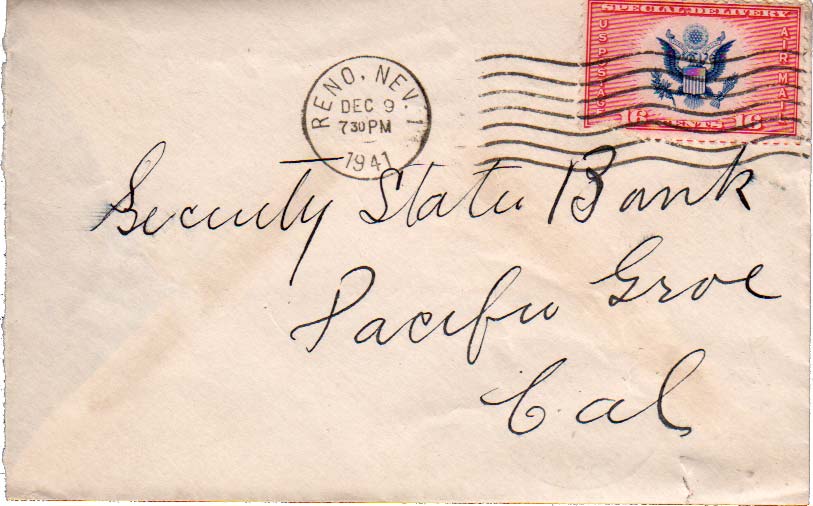 SPECIAL DELIVERY
U S POSTAGE
AIR MAIL
16 CENTS 16
RENO, NEV. 1
DEC 9
730 PM
1941
Security State Bank
Pacific Grove
Cal